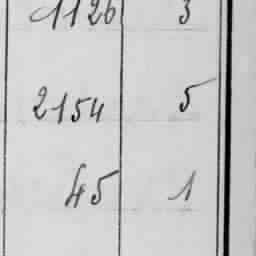 1126 3
2154 5
45 1